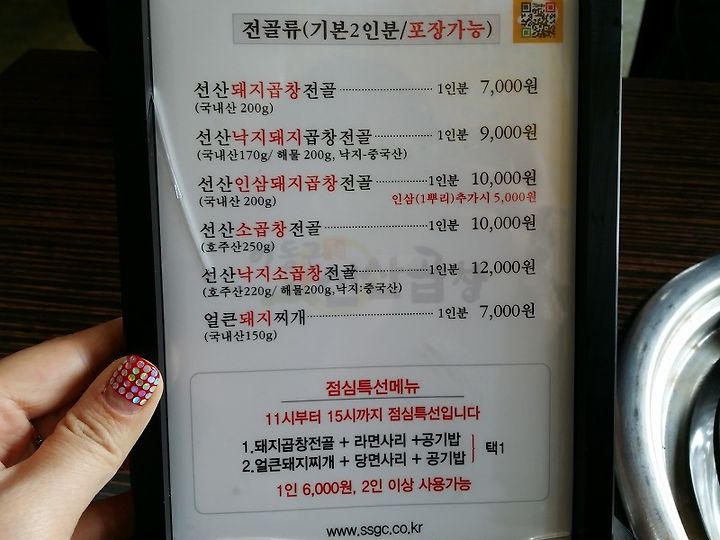 전골류(기본2인분/포장가능)
선산돼지곱창전골 1인분 7,000원
(국내산 200g)
선산낙지돼지곱창전골 1인분 9,000원
(국내산170g/ 해물 200g, 낙지-중국산)
선산인삼돼지곱창전골 1인분 10,000원
(국내산 200g) 인삼(1뿌리)추가시 5,000원
선산소곱창전골 1인분 10,000원
(호주산250g)
선산낙지소곱창전골 1인분 12,000원
(호주산220g/ 해물200g,낙지:중국산)
얼큰돼지찌개 1인분 7,000원
(국내산150g)
점심특선메뉴
11시부터 15시까지 점심특선입니다
1.돼지곱창전골 + 라면사리 +공기밥
2.얼큰돼지찌개 + 당면사리 + 공기밥 택1
1인 6,000원, 2인 이상 사용가능
www.ssgc.co.kr